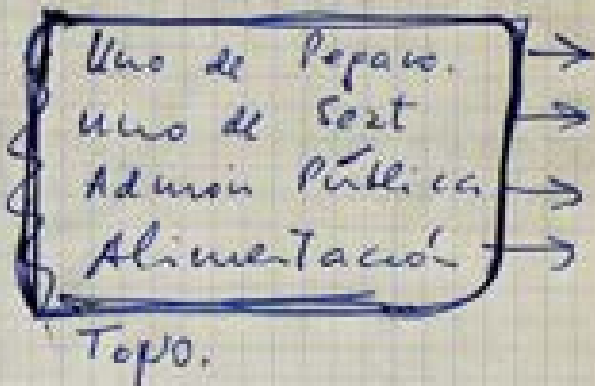 Uno de Pepano.
Uno de Sozt
Admon Pública
Alimentación
Topo.